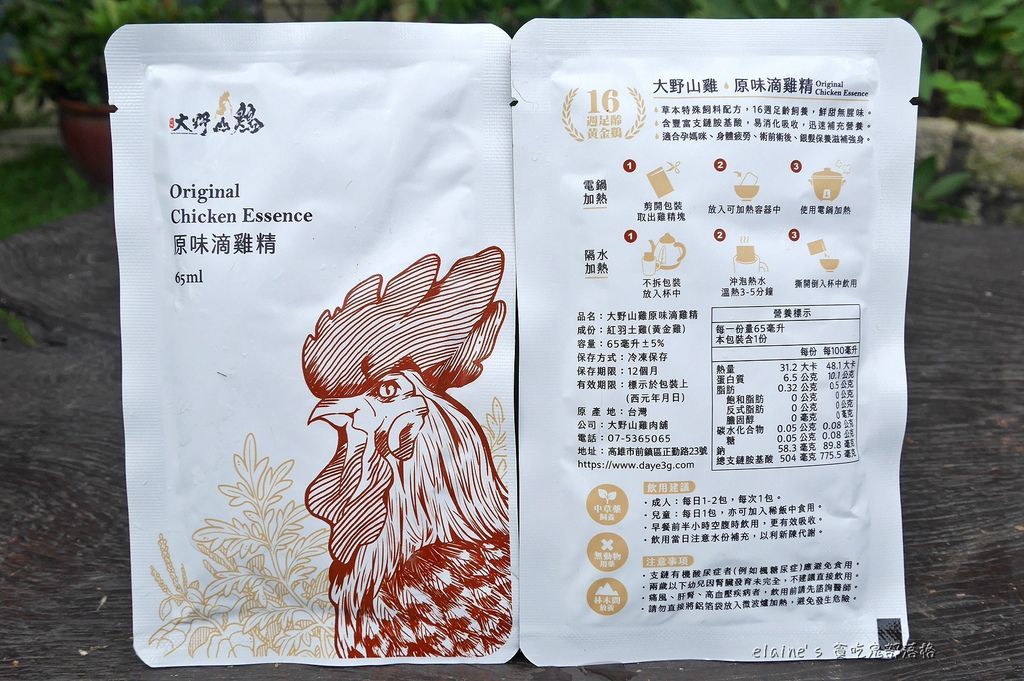 大野山雞
Original
Chicken Essence
原味滴雞精
65ml
16
週足齡
黃金鷄
大野山雞 原味滴雞精 Original Chicken Essence
草本特殊飼料配方，16週足齡飼養，鮮甜無腥味。
含豐富支鏈胺基酸，易消化吸收，迅速補充營養。
適合孕媽咪、身體疲勞、術前術後、銀髮保養滋補強身。
電鍋
加熱
1
剪開包裝
取出雞精塊
2
放入可加熱容器中
3
使用電鍋加熱
隔水
加熱
1
不拆包裝
放入杯中
2
沖泡熱水
溫熱3-5分鐘
3
撕開倒入杯中飲用
品名：大野山雞原味滴雞精
成份：紅羽土雞(黃金雞)
容量：65毫升±5%
保存方式：冷凍保存
保存期限：12個月
有效期限：標示於包裝上
(西元年月日)
原 產 地：台灣
公司：大野山雞肉舖
電話：07-5365065
地址：高雄市前鎮區正勤路23號
https://www.daye3g.com
營養標示
每一份量65毫升
本包裝含1份
每份 每100毫升
熱量 31.2 大卡 48.1 大卡
蛋白質 6.5 公克 10.1 公克
脂肪 0.32 公克 0.5 公克
飽和脂肪 0 公克 0 公克
反式脂肪 0 公克 0 公克
膽固醇 0 毫克 0 毫克
碳水化合物 0.05 公克 0.08 公克
糖 0.05 公克 0.08 公克
鈉 58.3 毫克 89.8 毫克
總支鏈胺基酸 504 毫克 775.5 毫克
中草藥
飼養
無動物
用藥
林木間
放養
飲用建議
・成人：每日1-2包，每次1包。
・兒童：每日1包，亦可加入稀飯中食用。
・早餐前半小時空腹時飲用，更有效吸收。
・飲用當日注意水份補充，以利新陳代謝。
注意事項
・支鏈有機酸尿症者(例如楓糖尿症)應避免食用。
・兩歲以下幼兒因腎臟發育未完全，不建議直接飲用。
・痛風、肝腎、高血壓疾病者，飲用前請先諮詢醫師。
・請勿直接將鋁箔袋放入微波爐加熱，避免發生危險。
elaine's 貪吃鬼部落格